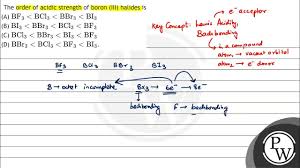 The order of acidic strength of boron (III) halides is
(A) BF₃ < BCl₃ < BBr₃ < BI₃
(B) BI₃ < BBr₃ < BCl₃ < BF₃
(C) BCl₃ < BBr₃ < BI₃ < BF₃
(D) BBr₃ < BCl₃ < BF₃ < BI₃
e⁻ acceptor
Key Concept: Lewis Acidity,
Backbonding
in a compound
atom₁ → vacant orbital
atom₂ → e⁻ donor
BF₃ BCl₃ BBr₃ BI₃
B → octet incomplete BX₃ → 6e⁻ → 8e⁻
backbonding F → backbonding
P
W